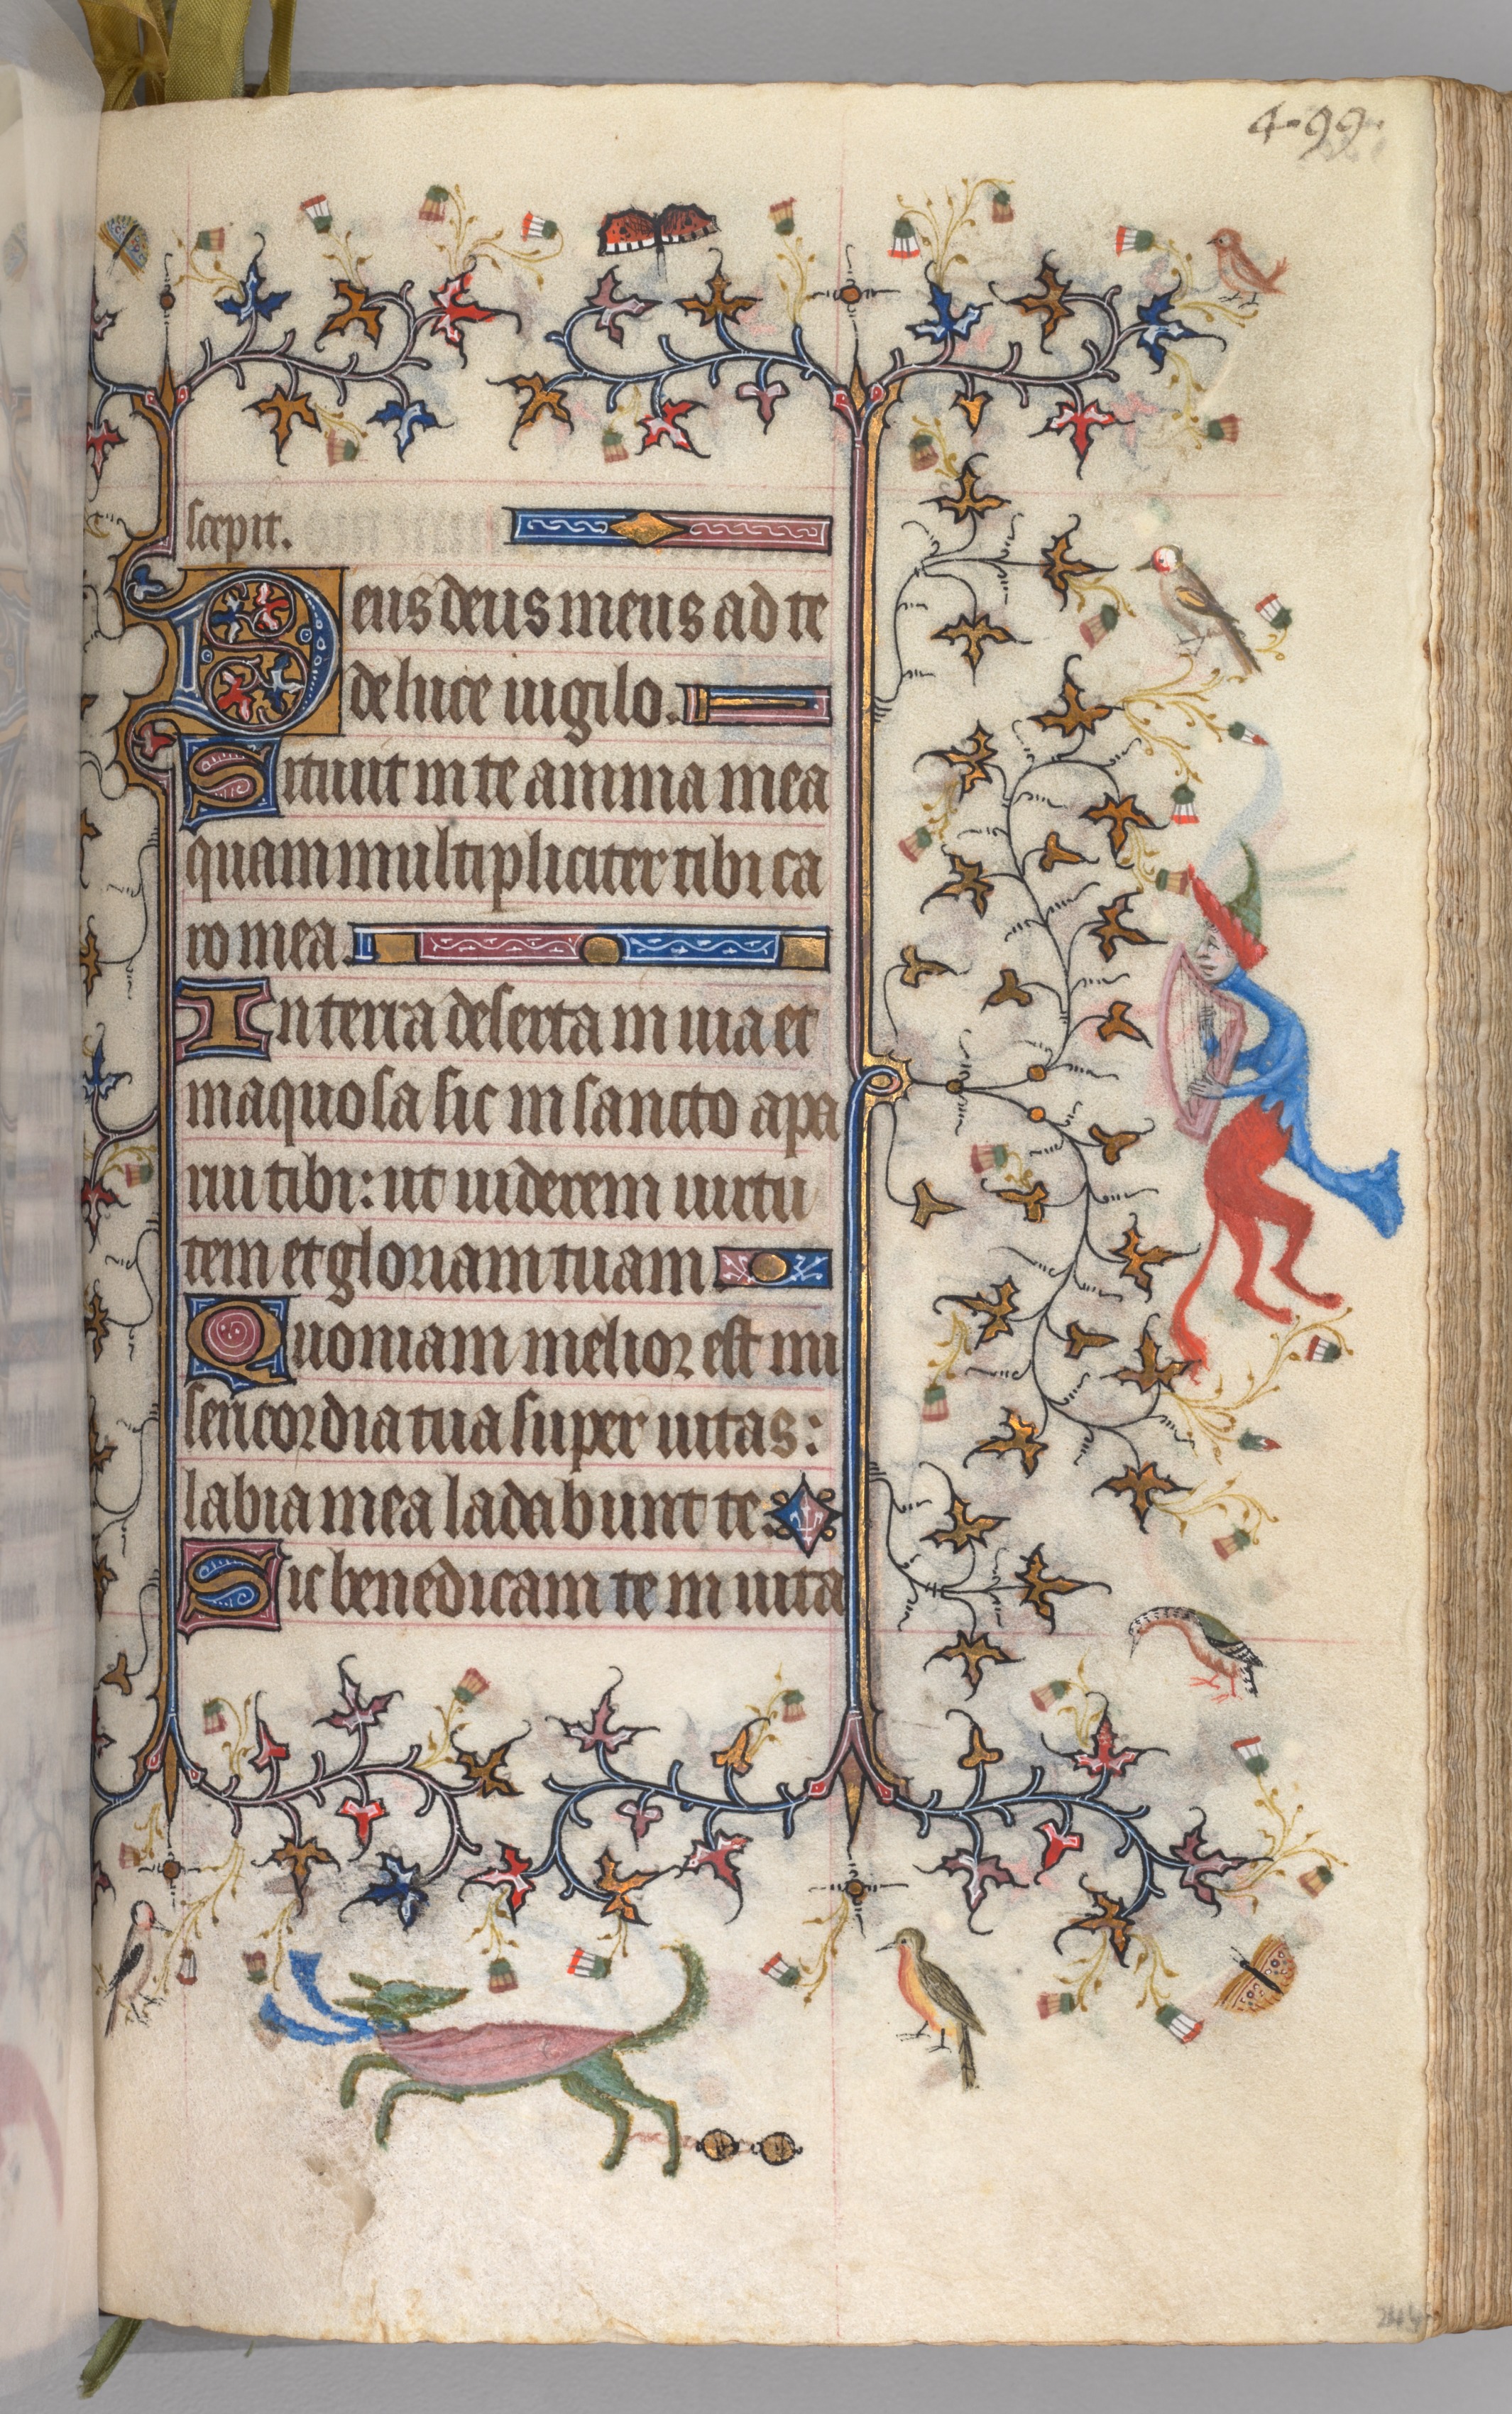 499
scepit.
Deus deus meus ad te
de luce uigilo.
Sitiuit in te anima mea
quam multipliciter tibi ca
ro mea.
In terra deserta in uia et
inaquosa sic in sancto apa
rui tibi: ut uiderem uirtu
tem et gloriam tuam
Quoniam melior est mi
sericordia tua super uitas:
labia mea ladabunt te.
Sic benedicam te in uita